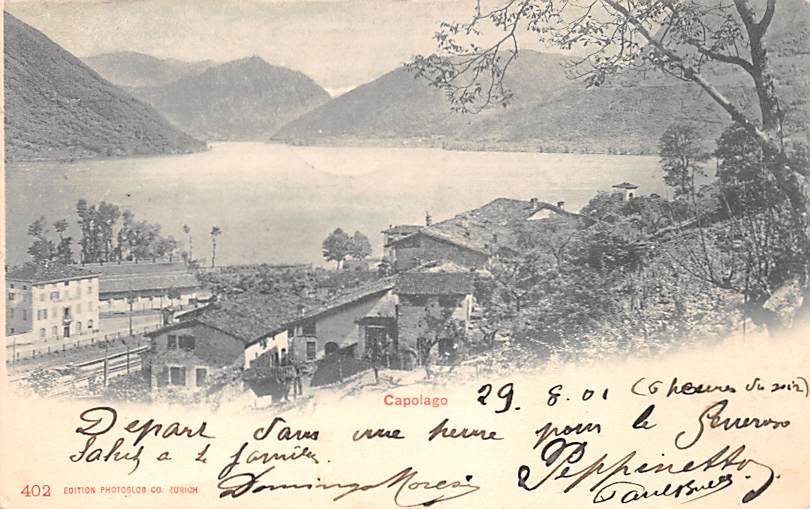 Capolago
29. 8. 01 (6 heures du soir)
Départ dans une heure pour le Generoso
Salut à la famille.
Domingo Moresi
Peppinetto
Paul
402 EDITION PHOTOGLOB CO. ZÜRICH